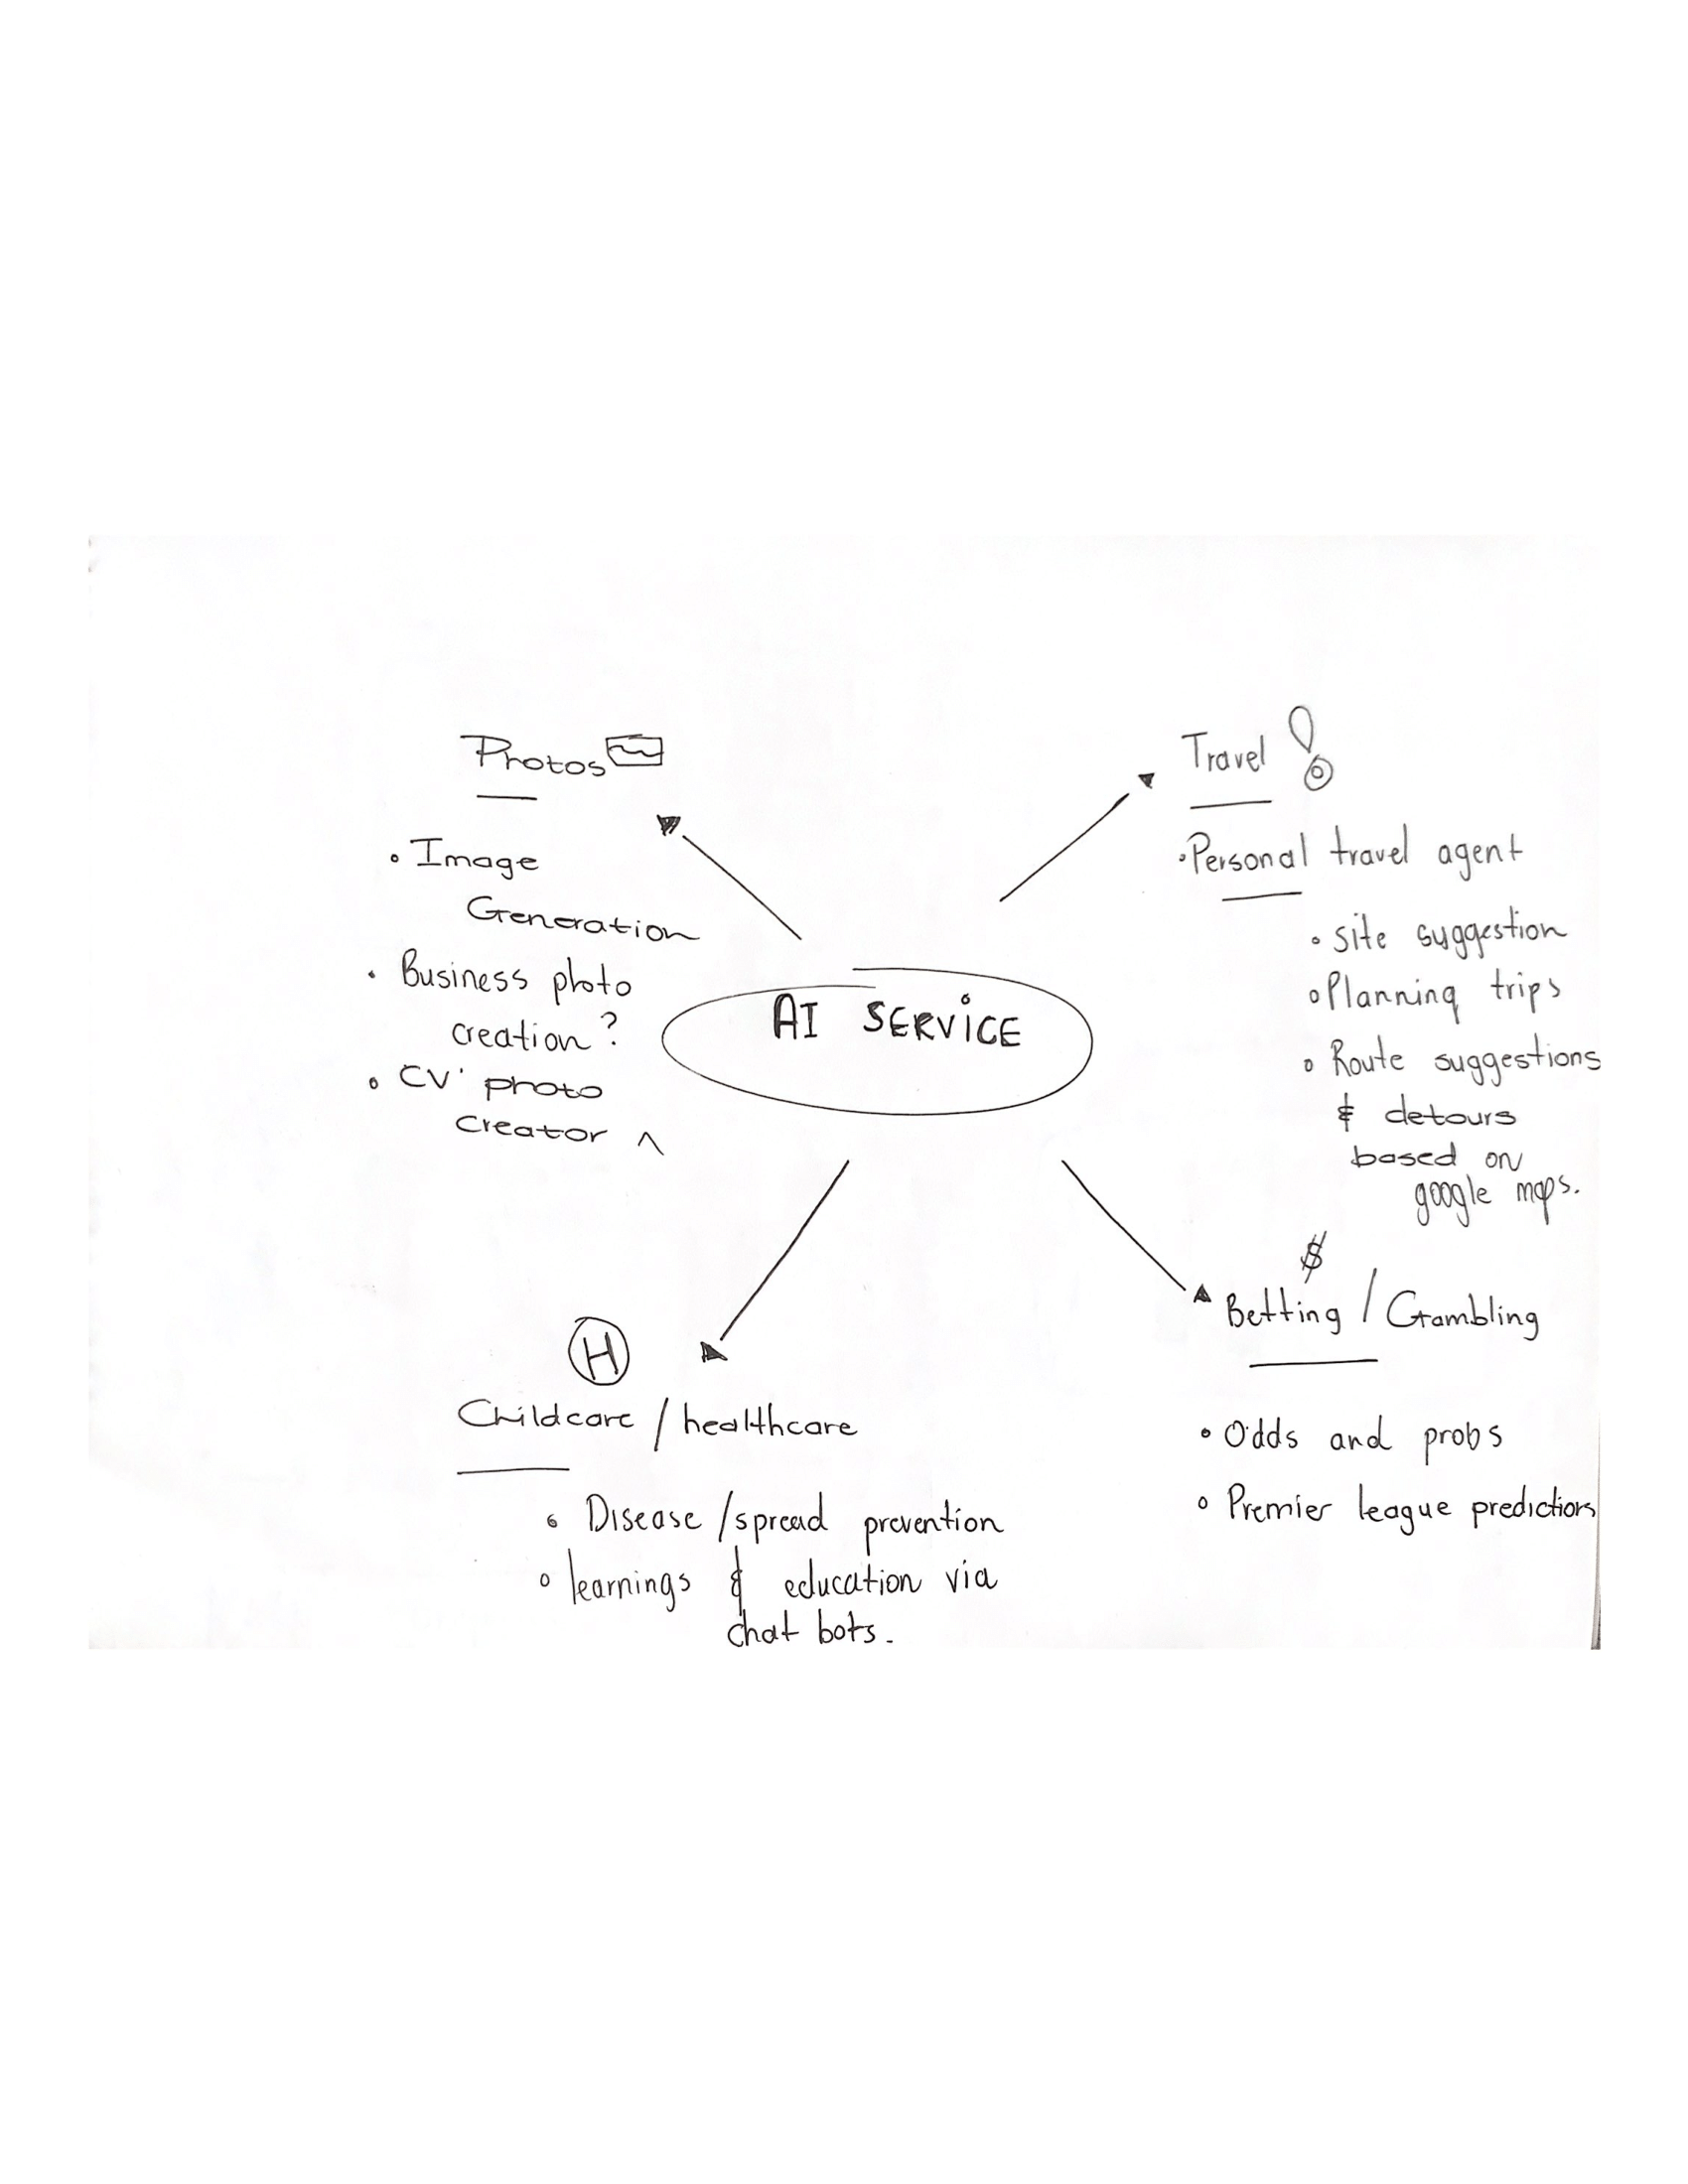 Photos
• Image
Generation
• Business photo
creation?
• CV' photo
creator ^
Travel
• Personal travel agent
• site suggestion
• Planning trips
• Route suggestions
& detours
based on
google maps.
AI SERVICE
H
Childcare / healthcare
• Disease / spread prevention
• learnings & education via
chat bots.
$
Betting / Gambling
• Odds and probs
• Premier league predictions